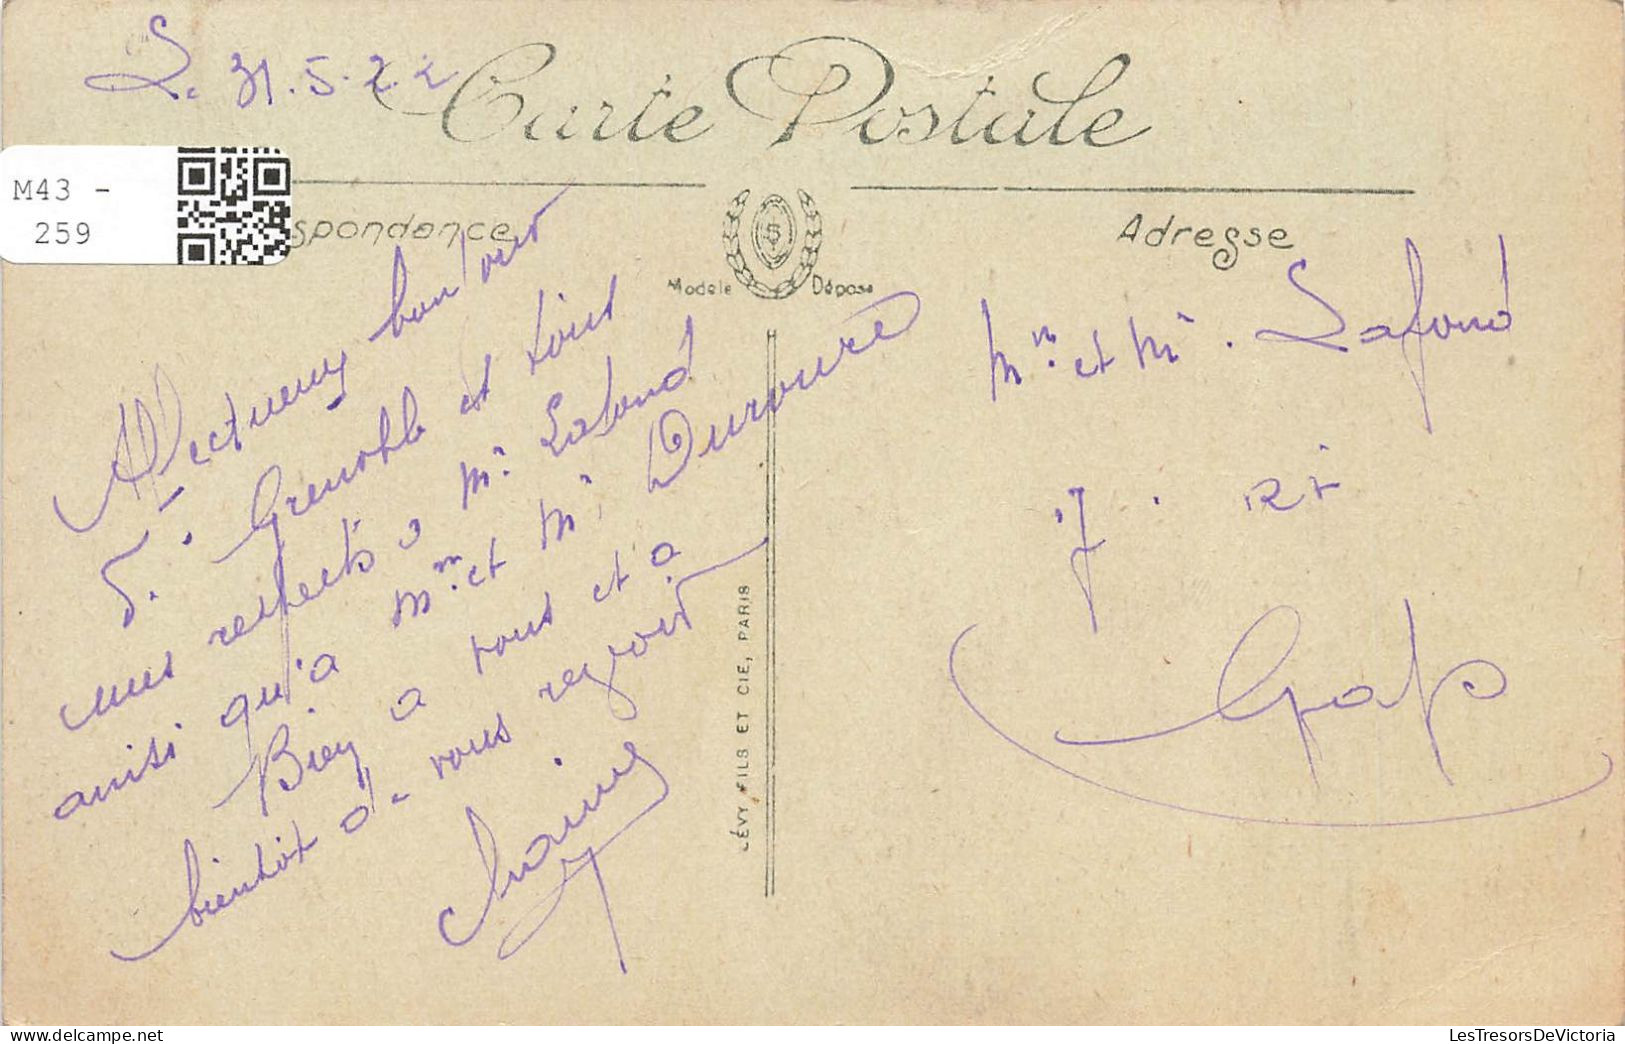 31.5.22
Carte Postale
M43 -
259
spondance
Adresse
Modèle Déposé
Affectueux bonjour
de Grenoble et tous
mes respects à Mr Lafond
ainsi qu'à Mme et Mr Duroure
Bien à vous et à
bientôt d- vous revoir
LÉVY FILS ET CIE, PARIS
Mme et Mr. Lafond
Gap
LesTresorsDeVictoria